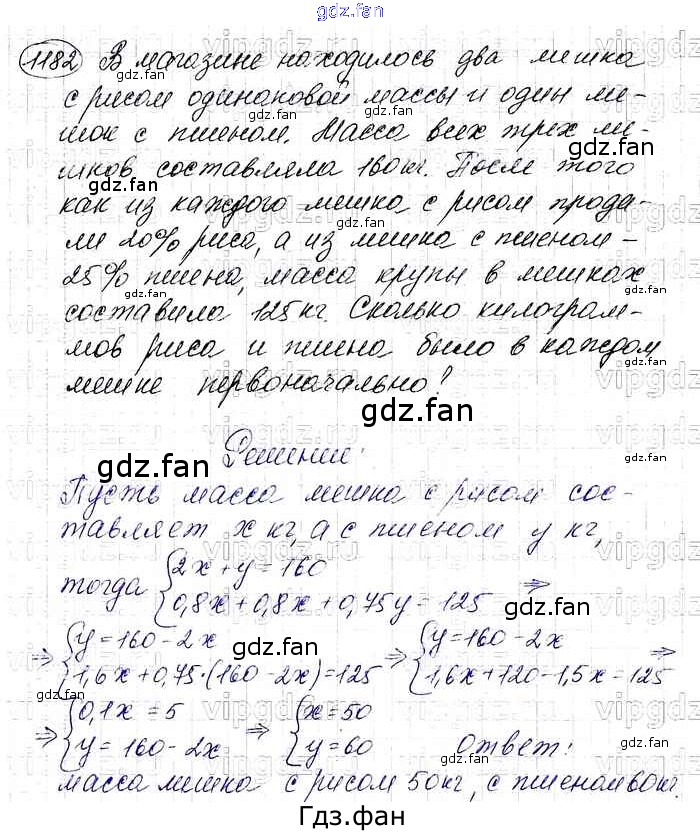 gdz.fan
1182 В магазине находилось два мешка
с рисом одинаковой массы и один ме-
шок с пшеном. Масса всех трех ме-
шков составляла 160 кг. После того
как из каждого мешка с рисом прода-
ли 20% риса, а из мешка с пшеном -
25% пшена, масса крупы в мешках
составила 125 кг. Сколько килограм-
мов риса и пшена было в каждом
мешке первоначально?
gdz.fan
Решение:
Пусть масса мешка с рисом сос-
тавляет x кг, а с пшеном y кг,
тогда { 2x + y = 160
0,8x + 0,8x + 0,75y = 125 ⇒
⇒ { y = 160 - 2x ⇒ { y = 160 - 2x
1,6x + 0,75·(160 - 2x) = 125 1,6x + 120 - 1,5x = 125 ⇒
⇒ { 0,1x = 5 ⇒ { x = 50
y = 160 - 2x y = 60 Ответ:
масса мешка с рисом 50 кг, с пшеном 60 кг.
Гдз.фан